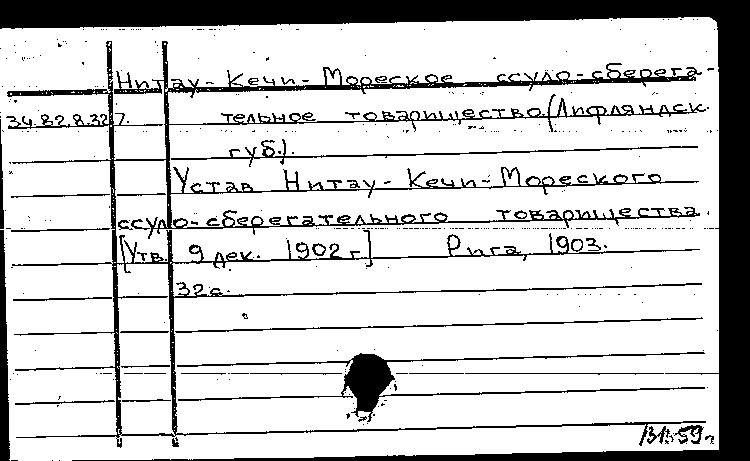 Нитау-Кечи-Мореское ссуло-сберега-
34.82.8.327. тельное товарищество.(Лифляндск.
губ.).
Устав Нитау-Кечи-Мореского
ссуло-сберегательного товарищества.
[Утв. 9 дек. 1902 г.] Рига, 1903.
32с.